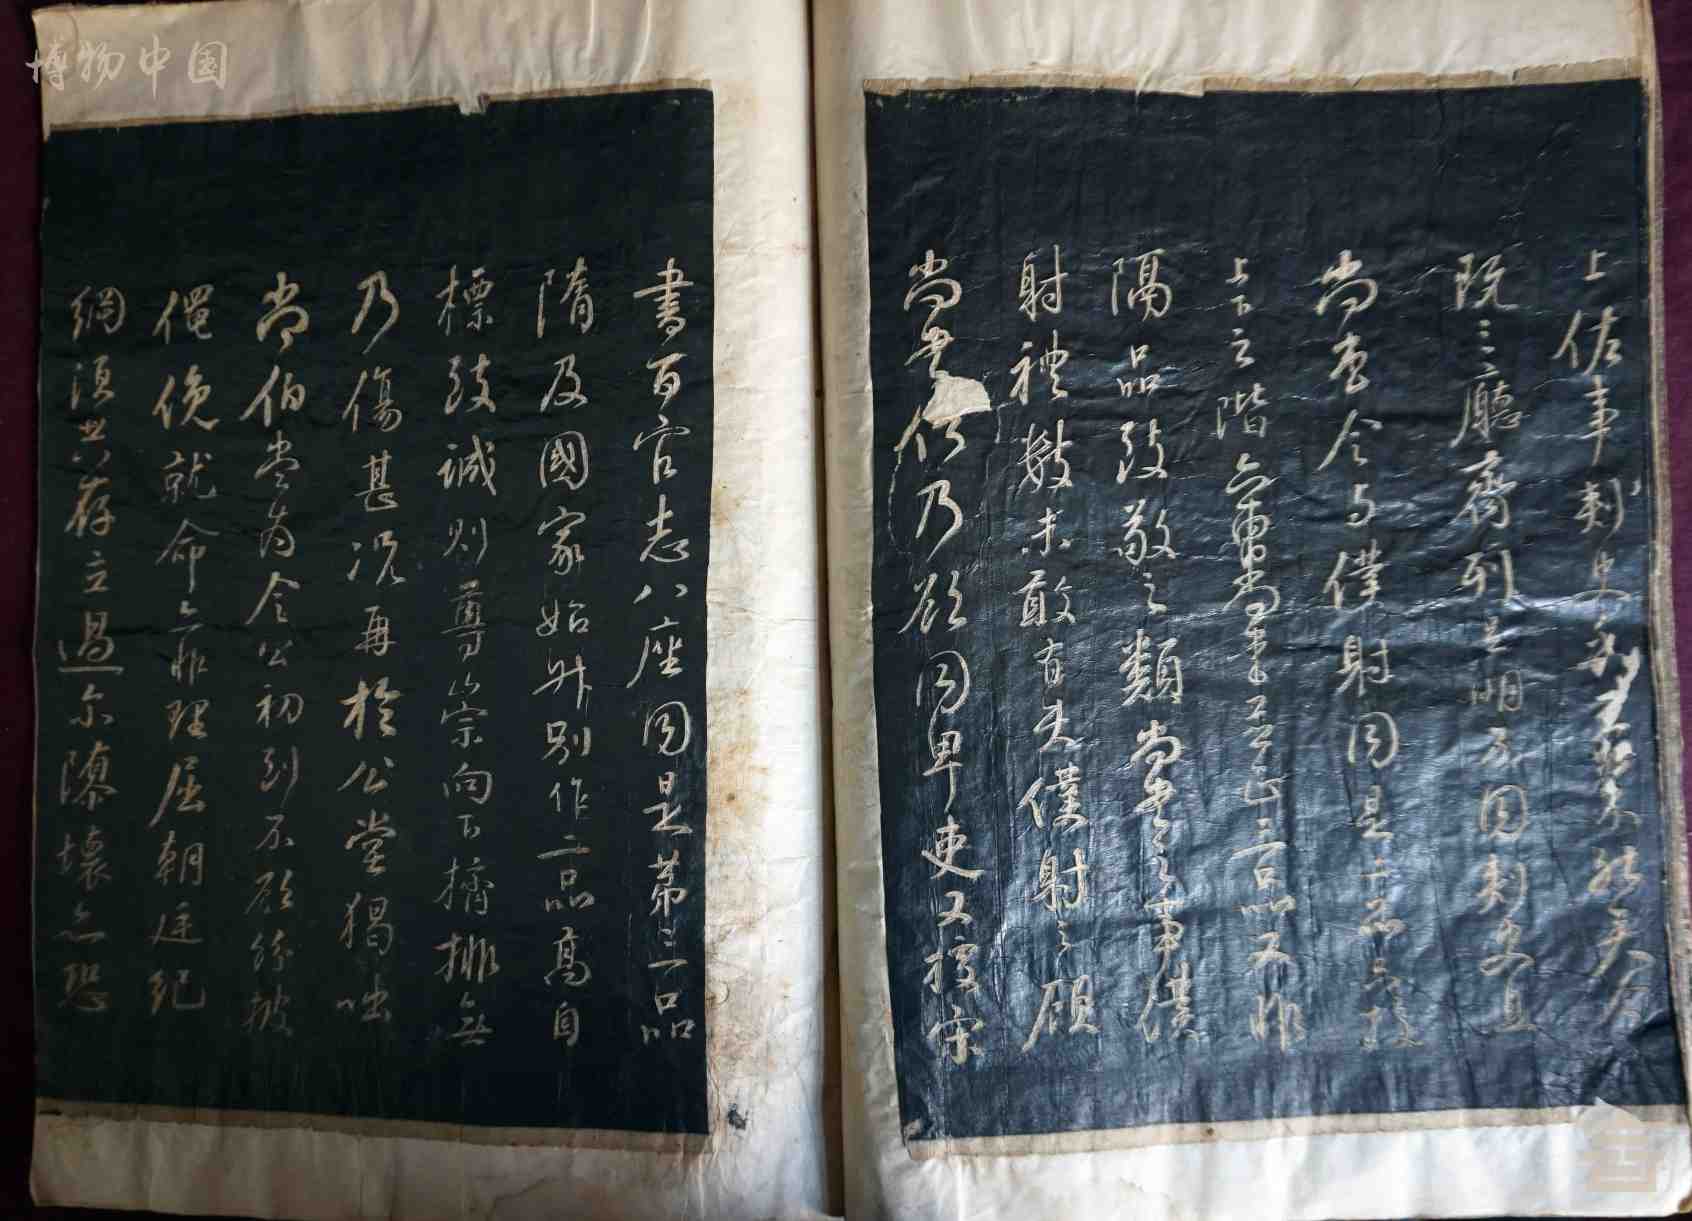 博物中国
上佐事刺史則不然矣今
既三廳齊列足明不同刺史且
尚書令與僕射同是二品只校
上下之階六曹尚書並正三品又非
隔品致敬之類尚書之事僕
射禮數未敢有失僕射之顧
尚書何乃欲同卑吏又據宋
書百官志八座同是第三品
隋及國家始升別作二品高自
標致誠則尊崇向下擠排無
乃傷甚況再於公堂猲咄
常伯當為令公初到不欲紛披
僶俛就命亦非理屈朝廷紀
綱須共存立過尔隳壞亦恐